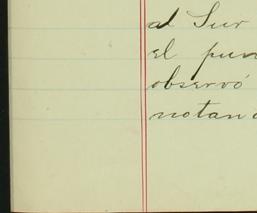 al Sur
el pun
observó
notan